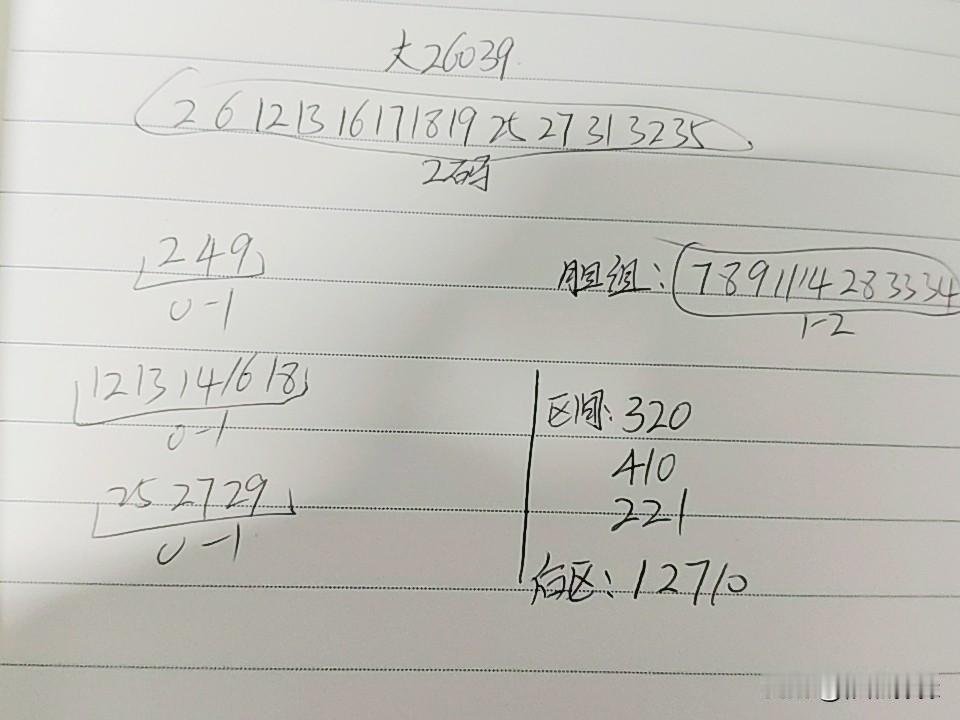 大26039
2 6 12 13 16 17 18 19 25 27 31 32 35
2码
2 4 9
0-1
胆组: 7 8 9 11 14 28 33 34
1-2
12 13 14 16 18
0-1
区间: 320
410
221
25 27 29
0-1
后区: 1 2 7 10